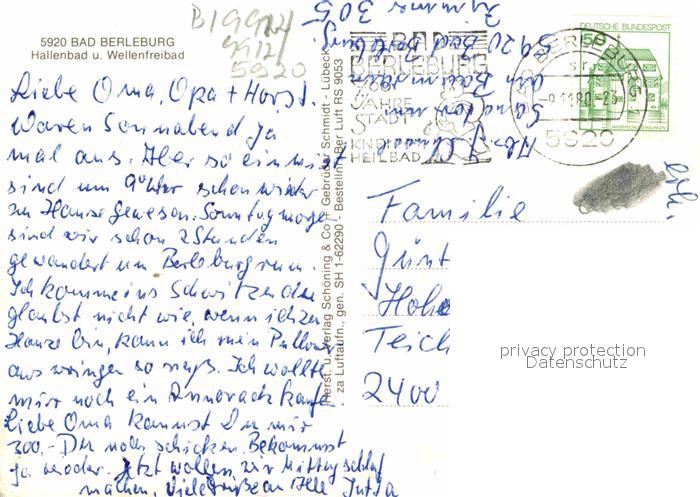 B1994
9912
5920
5920 BAD BERLEBURG
Hallenbad u. Wellenfreibad
Liebe Oma, Opa + Horst.
Waren Sonnabend ja
mal aus. Aber so ein
sind um 9 Uhr schon wieder
zu Hause gewesen. Sonntag
sind wir schon 2 Stunden
gewandert um Berleburg rum.
Ich komme ins Schwitzen du
glaubst nicht wie, wenn ich zu
Hause bin, kann ich mein Pullover
auswringen so naß. Ich wollte
mir noch ein Annorack kaufe
Liebe Oma kannst Du mir
300,- DM noch schicken. Bekommst
ja wieder. Jetzt wollen wir Mittagschlaf
machen. Viele Grüße an Alle Jutta
Herst. u. Verlag Schöning & Co + Gebrüder Schmidt - Lübeck
za Luftaufn., gen. SH 1-62290 - Bestellnr. Ber Luft RS 9053
Abs.
Sanatorium
5920 Bad Berleburg
Zimmer 305
BAD
BERLEBURG
JAHRE
STADT
KNEIPP
HEILBAD
BERLEBURG
-9.11.80-23
5920
DEUTSCHE BUNDESPOST
50
Familie
Günt
Hohe
Teich
2400
privacy protection
Datenschutz